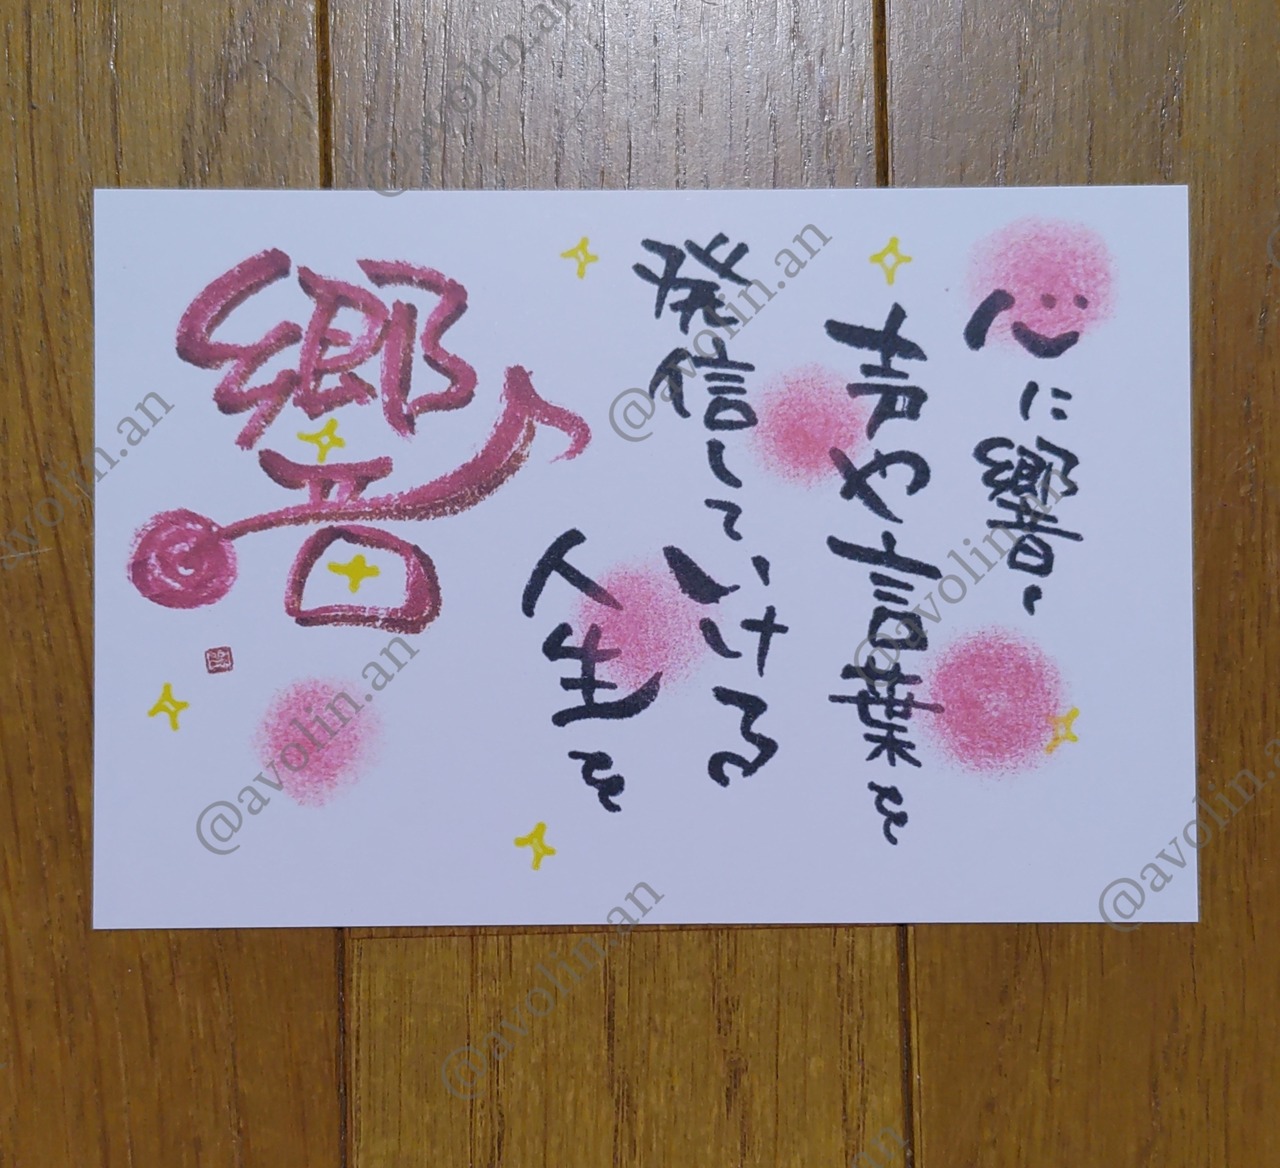 心に響く
声や言葉を
発信して
いける
人生を
響
@avolin.an
@avolin.an
@avolin.an
@avolin.an
@avolin.an
@avolin.an
@avolin.an